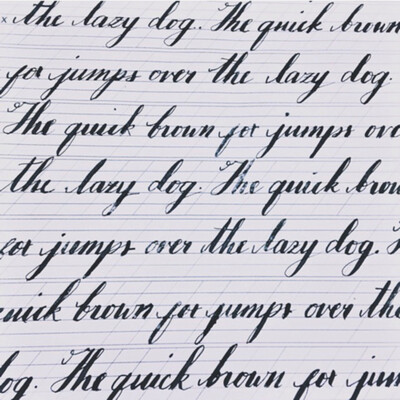 the lazy dog. The quick brown
fox jumps over the lazy dog.
The quick brown fox jumps ove
the lazy dog. The quick brow
fox jumps over the lazy dog.
quick brown fox jumps over the
dog. The quick brown fox jum